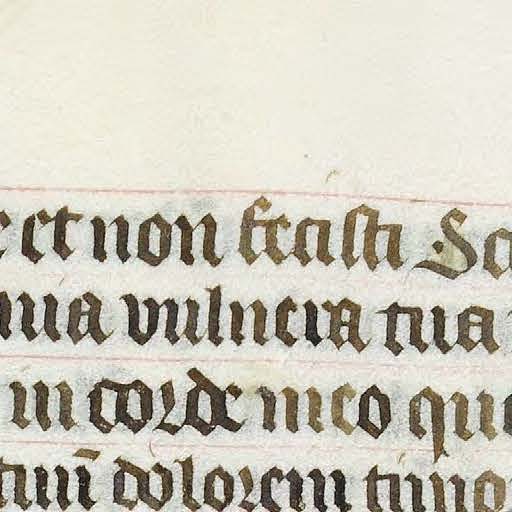 et non fecisti Sc
vulnera tua
in corde meo que
dolorem timo